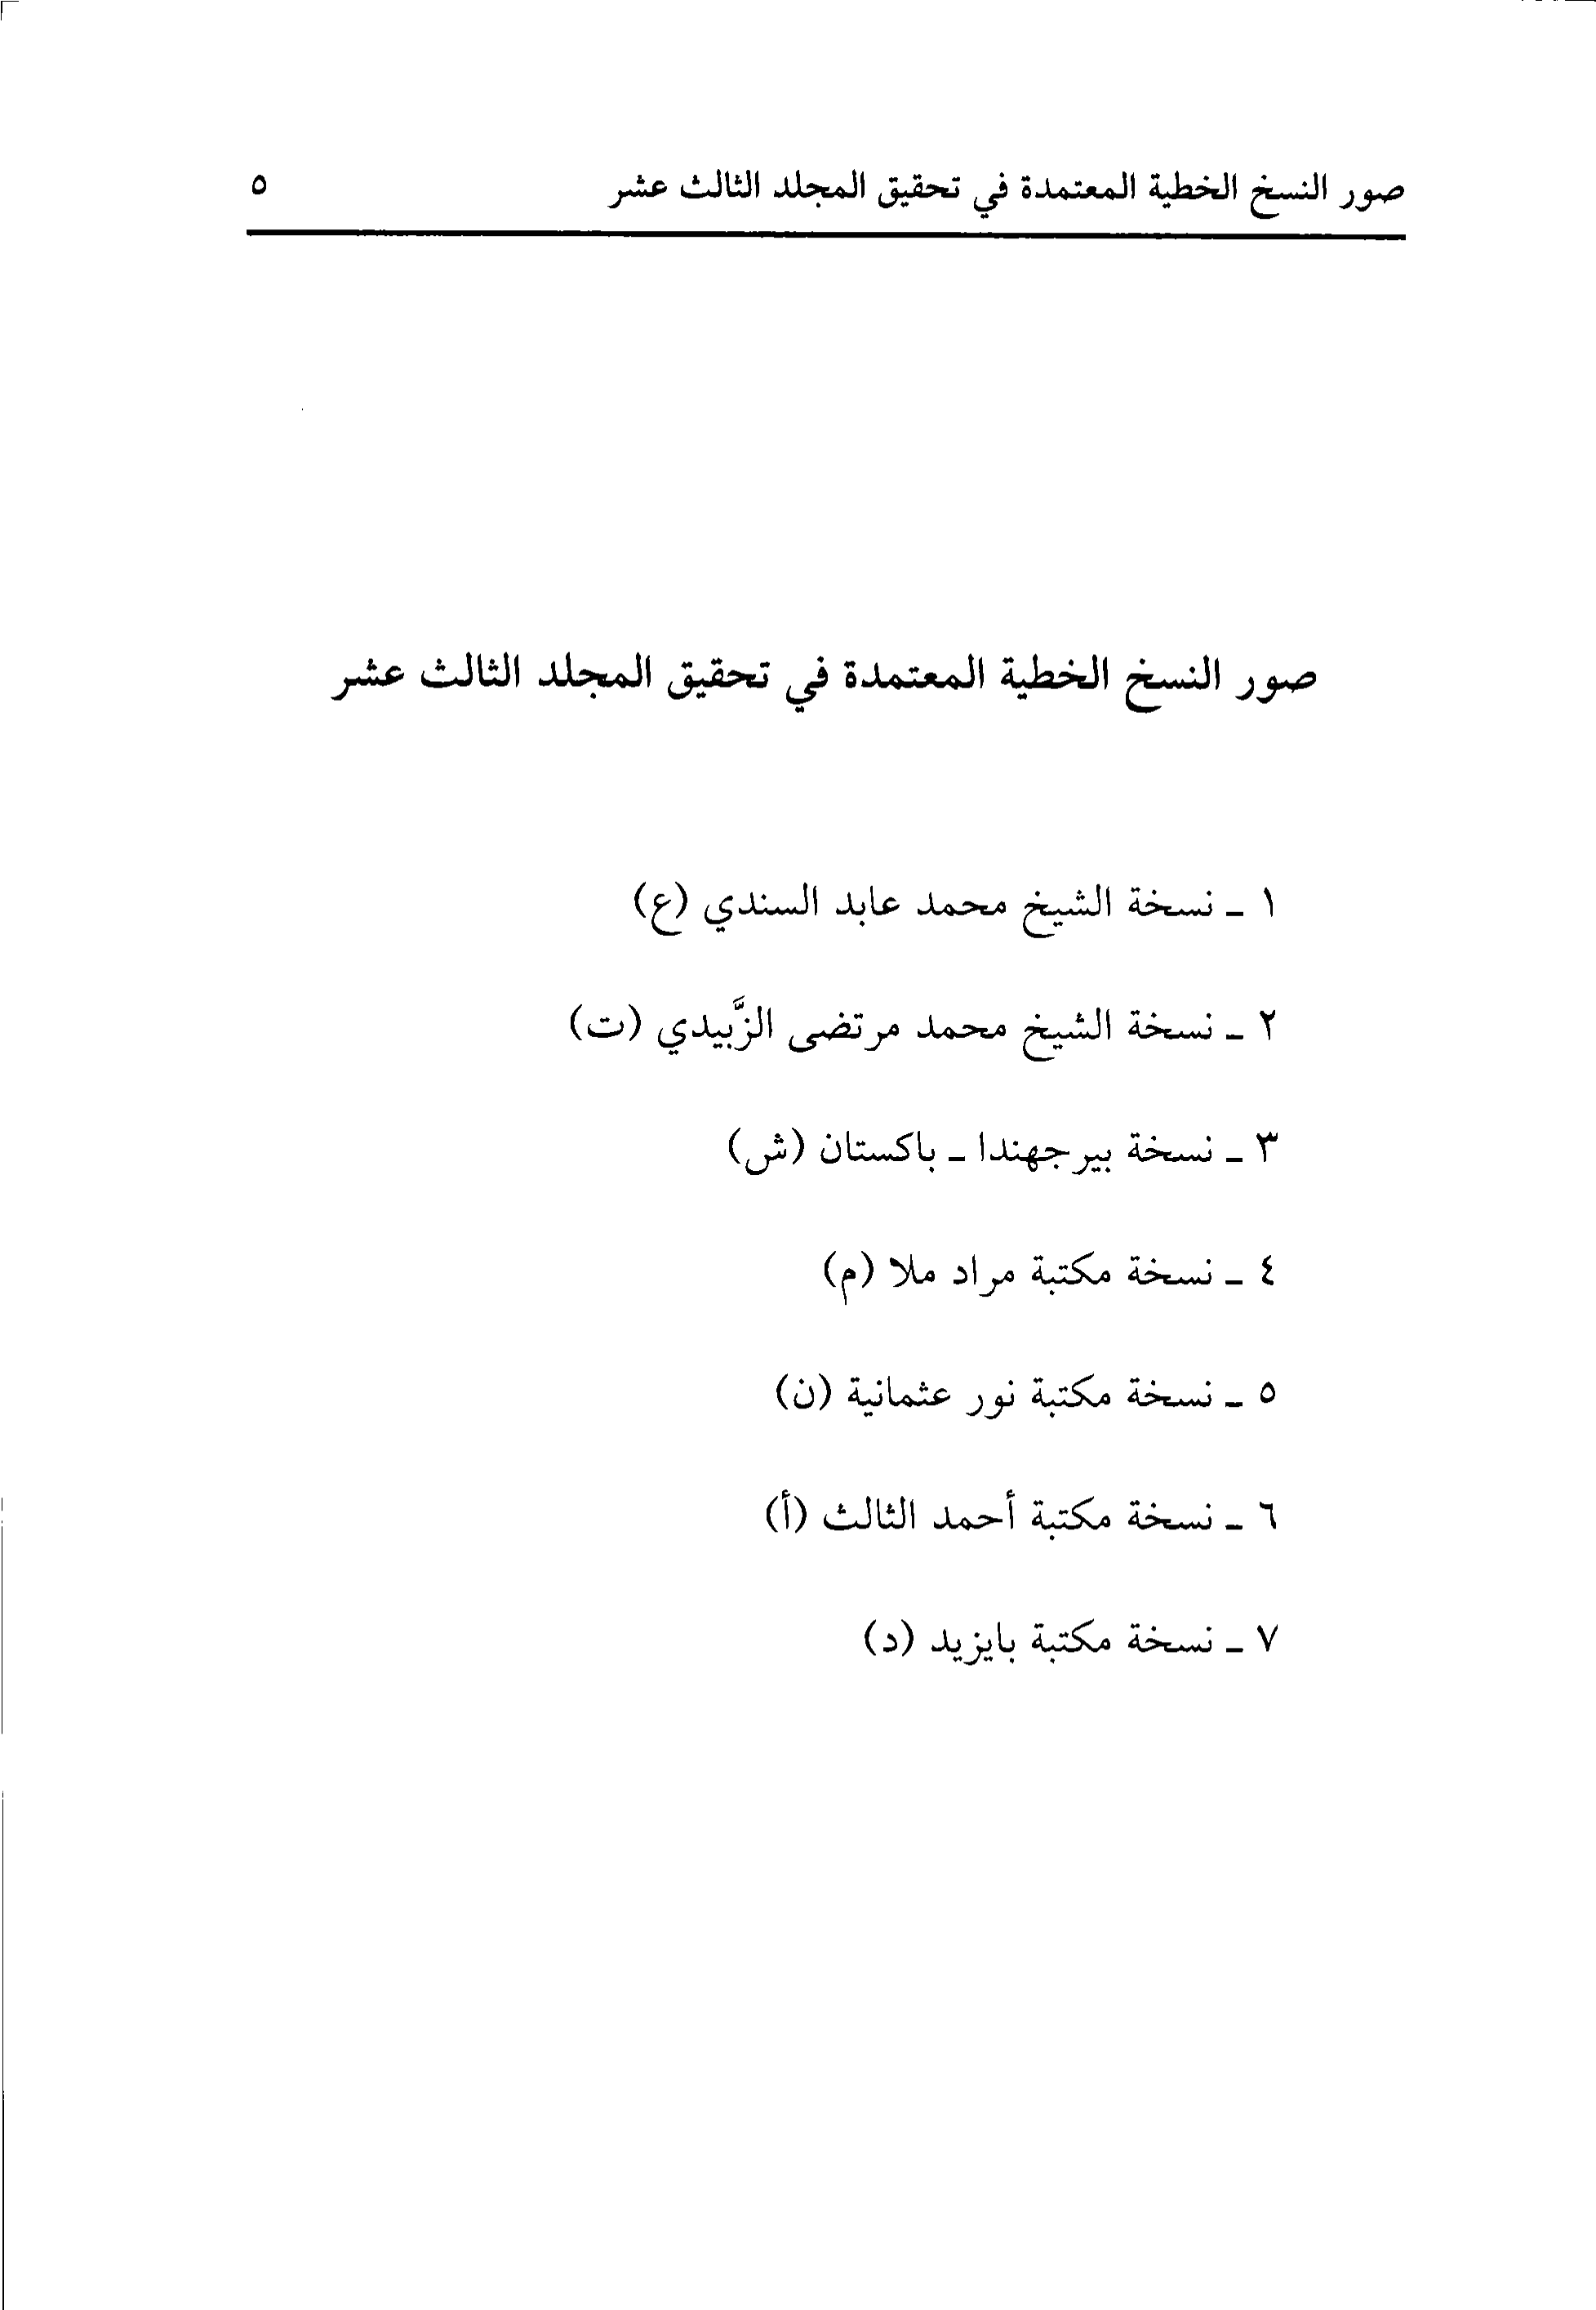 صور النسخ الخطية المعتمدة في تحقيق المجلد الثالث عشر ٥
صور النسخ الخطية المعتمدة في تحقيق المجلد الثالث عشر
١ ـ نسخة الشيخ محمد عابد السندي (ع)
٢ ـ نسخة الشيخ محمد مرتضى الزَّبيدي (ت)
٣ ـ نسخة بيرجهندا ـ باكستان (ش)
٤ ـ نسخة مكتبة مراد ملا (م)
٥ ـ نسخة مكتبة نور عثمانية (ن)
٦ ـ نسخة مكتبة أحمد الثالث (أ)
٧ ـ نسخة مكتبة بايزيد (د)